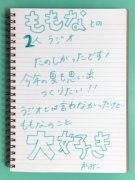 ももなとの
2人ラジオ
たのしかったです!
今年の夏も思い出
つくりたい!!
ラジオでは言わなかったけど
ももなのこと
大好き